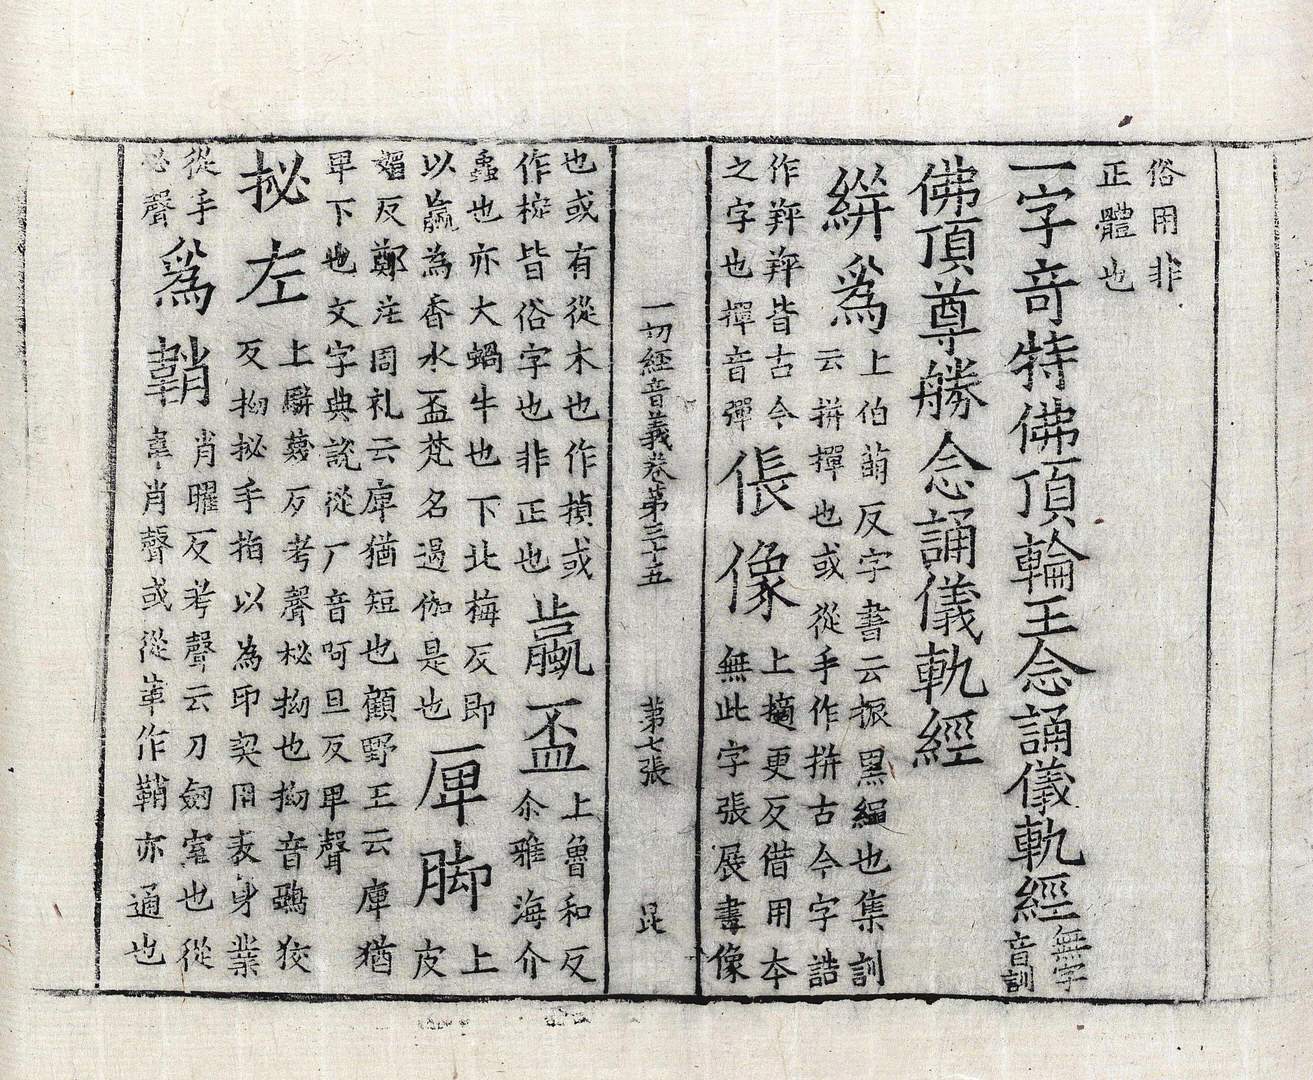 俗用非
正體也
一字竒特佛頂輪王念誦儀軌經
無字
音訓
佛頂尊勝念誦儀軌經
絣爲
上伯萌反字書云振黑繩也集訓
云拼撣也或從手作拼古今字誥
作羍羍皆古今
之字也撣音彈
倀像
上摘更反借用夲
無此字張展畫像
一切經音義卷第三十五
第七張
昆
也或有從木也作楨或
作椗皆俗字也非正也
蠃盃
上魯和反
尒雅海介
蟸也亦大蝸牛也下北梅反即
以蠃為香水盃梵名遏伽是也
厗脚
上
皮
媚反鄭注周礼云庳猶短也顧野王云庳猶
卑下也文字典說從厂音呵旦反卑聲
拟左
上騈蔑反考聲柲拗也拗音鵶狡
反拗拟手指以為印契用表身業
從手
必聲
爲鞘
肖曜反考聲云刀劒室也從
韋肖聲或從革作鞘亦通也